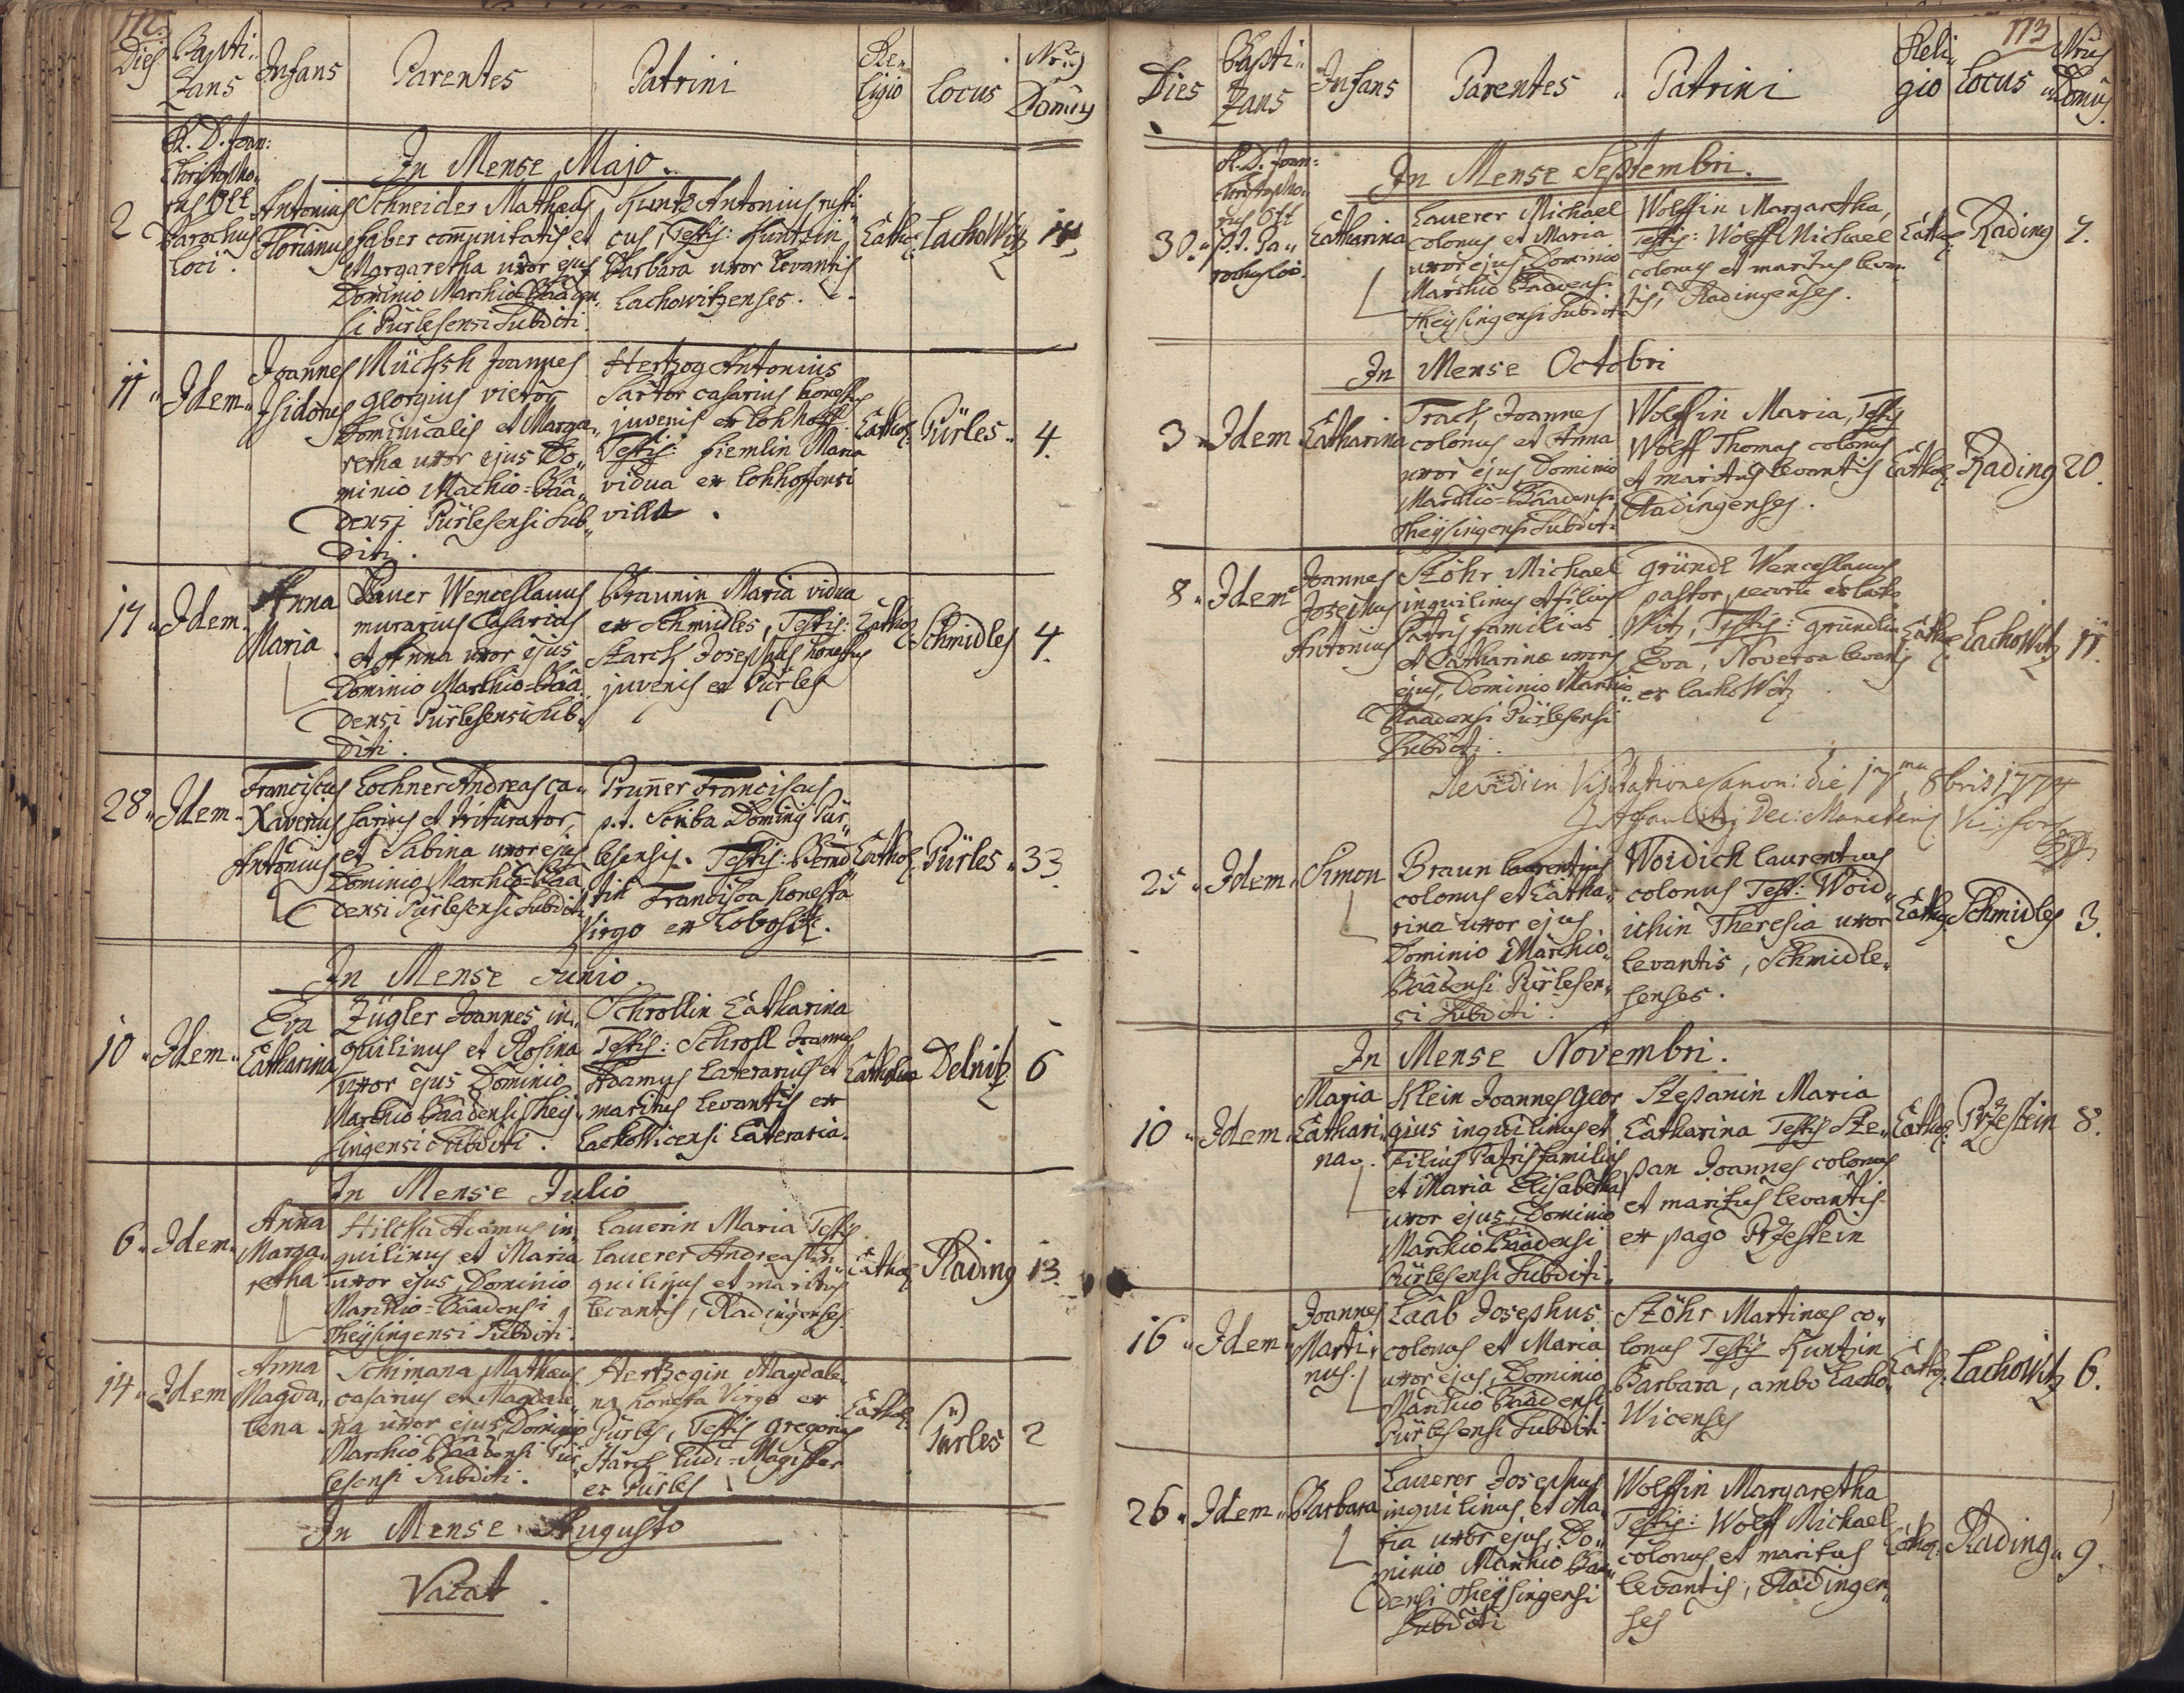 172.
Dies Bapti- Infans Parentes Patrini Re- Locus Nrus
zans ligio Domûs
In Mense Majo.
2
R. D. Joan:
Christopho-
rus Ott
Parochus
loci.
Antonius
Florianus
Schneider Mathæus
faber com̄unitatis et
Margaretha uxor ejus
Dominio Marchio-Bâaden-
si Pürlesensi Subditi.
Kuntz Antonius rusti-
cus, Testis: Kuntzin
Barbara uxor levantis
Lachowitzenses.
Cathol: Lachowitz
11 Idem
Joannes
Isidorus
Müchsh Joannes
Georgius vietor
Dominicalis et Marga-
retha uxor ejus Do-
minio Machio-Bâa-
densi Pürlesensi Sub-
diti.
Hertzog Antonius
Sartor casarius honestus
juvenis ex Lohhoff.
Testis: Fiemlin Maria
vidua ex Lohhoffensi
villa.
Cathol: Pürles 4.
17 Idem
Anna
Maria
Bauer Wenceslaus
murarius Casarius
et Anna uxor ejus
Dominio Marchio-Bâa-
densi Pürlesensi Sub-
diti.
Braunin Maria vidua
ex Schmidles, Testis:
Starch Josephus honestus
juvenis ex Pürles
Cathol: Schmidles 4.
28 Idem
Franciscus
Xaverius
Antonius
Lochner Andreas ca-
sarius et triturator,
et Sabina uxor ejus
Dominio Marchio-Bâa-
densi Pürlesensi Subditi
Prun̄er Franciscus
p.t. Scriba Dominij Pür-
lesensis. Testis: Bernd-
tin Francisca honesta
Virgo ex
Cathol: Pürles 33
In Mense Junio.
10 Idem
Eva
Catharina
Zügler Joannes in-
quilinus et Rosina
uxor ejus Dominio
Marchio Bâadensi Theÿ-
singensi Subditi.
Schrollin Catharina
Testis: Schroll Joannes
Adamus Laterarius et
maritus levantis ex
Lachowicensi Lateraria.
Catholica Delnitz 6
In Mense Julio
6 Idem
Anna
Marga-
retha
Adamus in-
quilinus et Maria
uxor ejus, Dominio
Marchio-Bâadensi
Theÿsingensi Subditi.
Lauerin Maria Testis
Lauerer Andreas in-
quilinus et maritus
levantis, Radingenses.
Cathol: Rading 13.
14 Idem
Anna
Magda-
lena
Schimana Mathæus
casarius et Magdale-
na uxor ejus, Dominio
Marchio Bâadensi Pür-
lesensi Subditi.
Hertzogin Magdale-
na honesta Virgo ex
Pürles, Testis Gregorius
Starch Ludi-Magister
ex Pürles
Cathol: Pürles 2
In Mense Augusto
Vacat.
173
Dies Bapti- Infans Parentes Patrini Reli- Locus Nrus
zans gio Domûs
In Mense Septembri.
30.
R. D. Joan:
Christopho-
rus Ott
p.t. Pa-
rochus loci.
Catharina
Lauerer Michael
colonus et Maria
uxor ejus, Dominio
Marchio Baadensi
Theÿsingensi Subditi
Wolffin Margaretha,
Testis: Wolff Michael
colonus et maritus levan-
tis, Radingenses.
Cathol: Rading
In Mense Octobri
3 Idem Catharina
Trach Joannes
colonus et Anna
uxor ejus, Dominio
Marchio-Bâadensi
Theÿsingensi Subditi
Wolffin Maria, Testis
Wolff Thomas colonus
et maritus levantis
Radingenses.
Cathol: Rading 20.
8 Idem
Joannes
Josephus
Antonius
Stöhr Michael
inquilinus et filius
Patris familias
et Catharina uxor
ejus, Dominio Marchio
Baadensi Pürlesensi
Subditi.
Gründl Wenceslaus
pastor pecoru ex Lacho-
witz, Testis: Gründlin
Eva, Noverca levantis
ex Lachowitz
Cathol: Lachowitz 11.
Revidi in Visitatione Canon: die 8bris 1774
25 Idem Simon
Braun Laurentius
colonus et Catha-
rina uxor ejus
Dominio Marchio-
Bâadensi Pürlesen-
si Subditi.
Woidich Laurentius
colonus Test: Woid-
ichin Theresia uxor
levantis, Schmidle-
senses.
Cathol: Schmidles 3.
In Mense Novembri.
10 Idem
Maria
Cathari-
na.
Klein Joannes Geor-
gius inquilinus et
Filius Patris familias
et Maria Elisabetha
uxor ejus, Dominio
Marchio Bâadensi
Pürlesensi Subditi.
Stepanin Maria
Catharina Testis Ste-
pan Joannes colonus
et maritus levantis
ex pago Przestein
Cathol: Przestein 8.
16 Idem
Joannes
Marti-
nus.
Laab Josephus
colonus et Maria
uxor ejus, Dominio
Marchio Bâadensi
Pürlesensi Subditi
Stöhr Martinus co-
lonus Testis Kuntzin
Barbara, ambo Lacho-
wicenses
Cathol: Lachowitz 6.
26 Idem Barbara
Lauerer Josephus
inquilinus, et Ma-
ria uxor ejus, Do-
minio Marchio Baa-
densi Theÿsingensi
Subditi
Wolffin Margaretha
Testis: Wolff Michael
colonus et maritus
levantis, Radingen-
ses
Cathol: Rading 9.